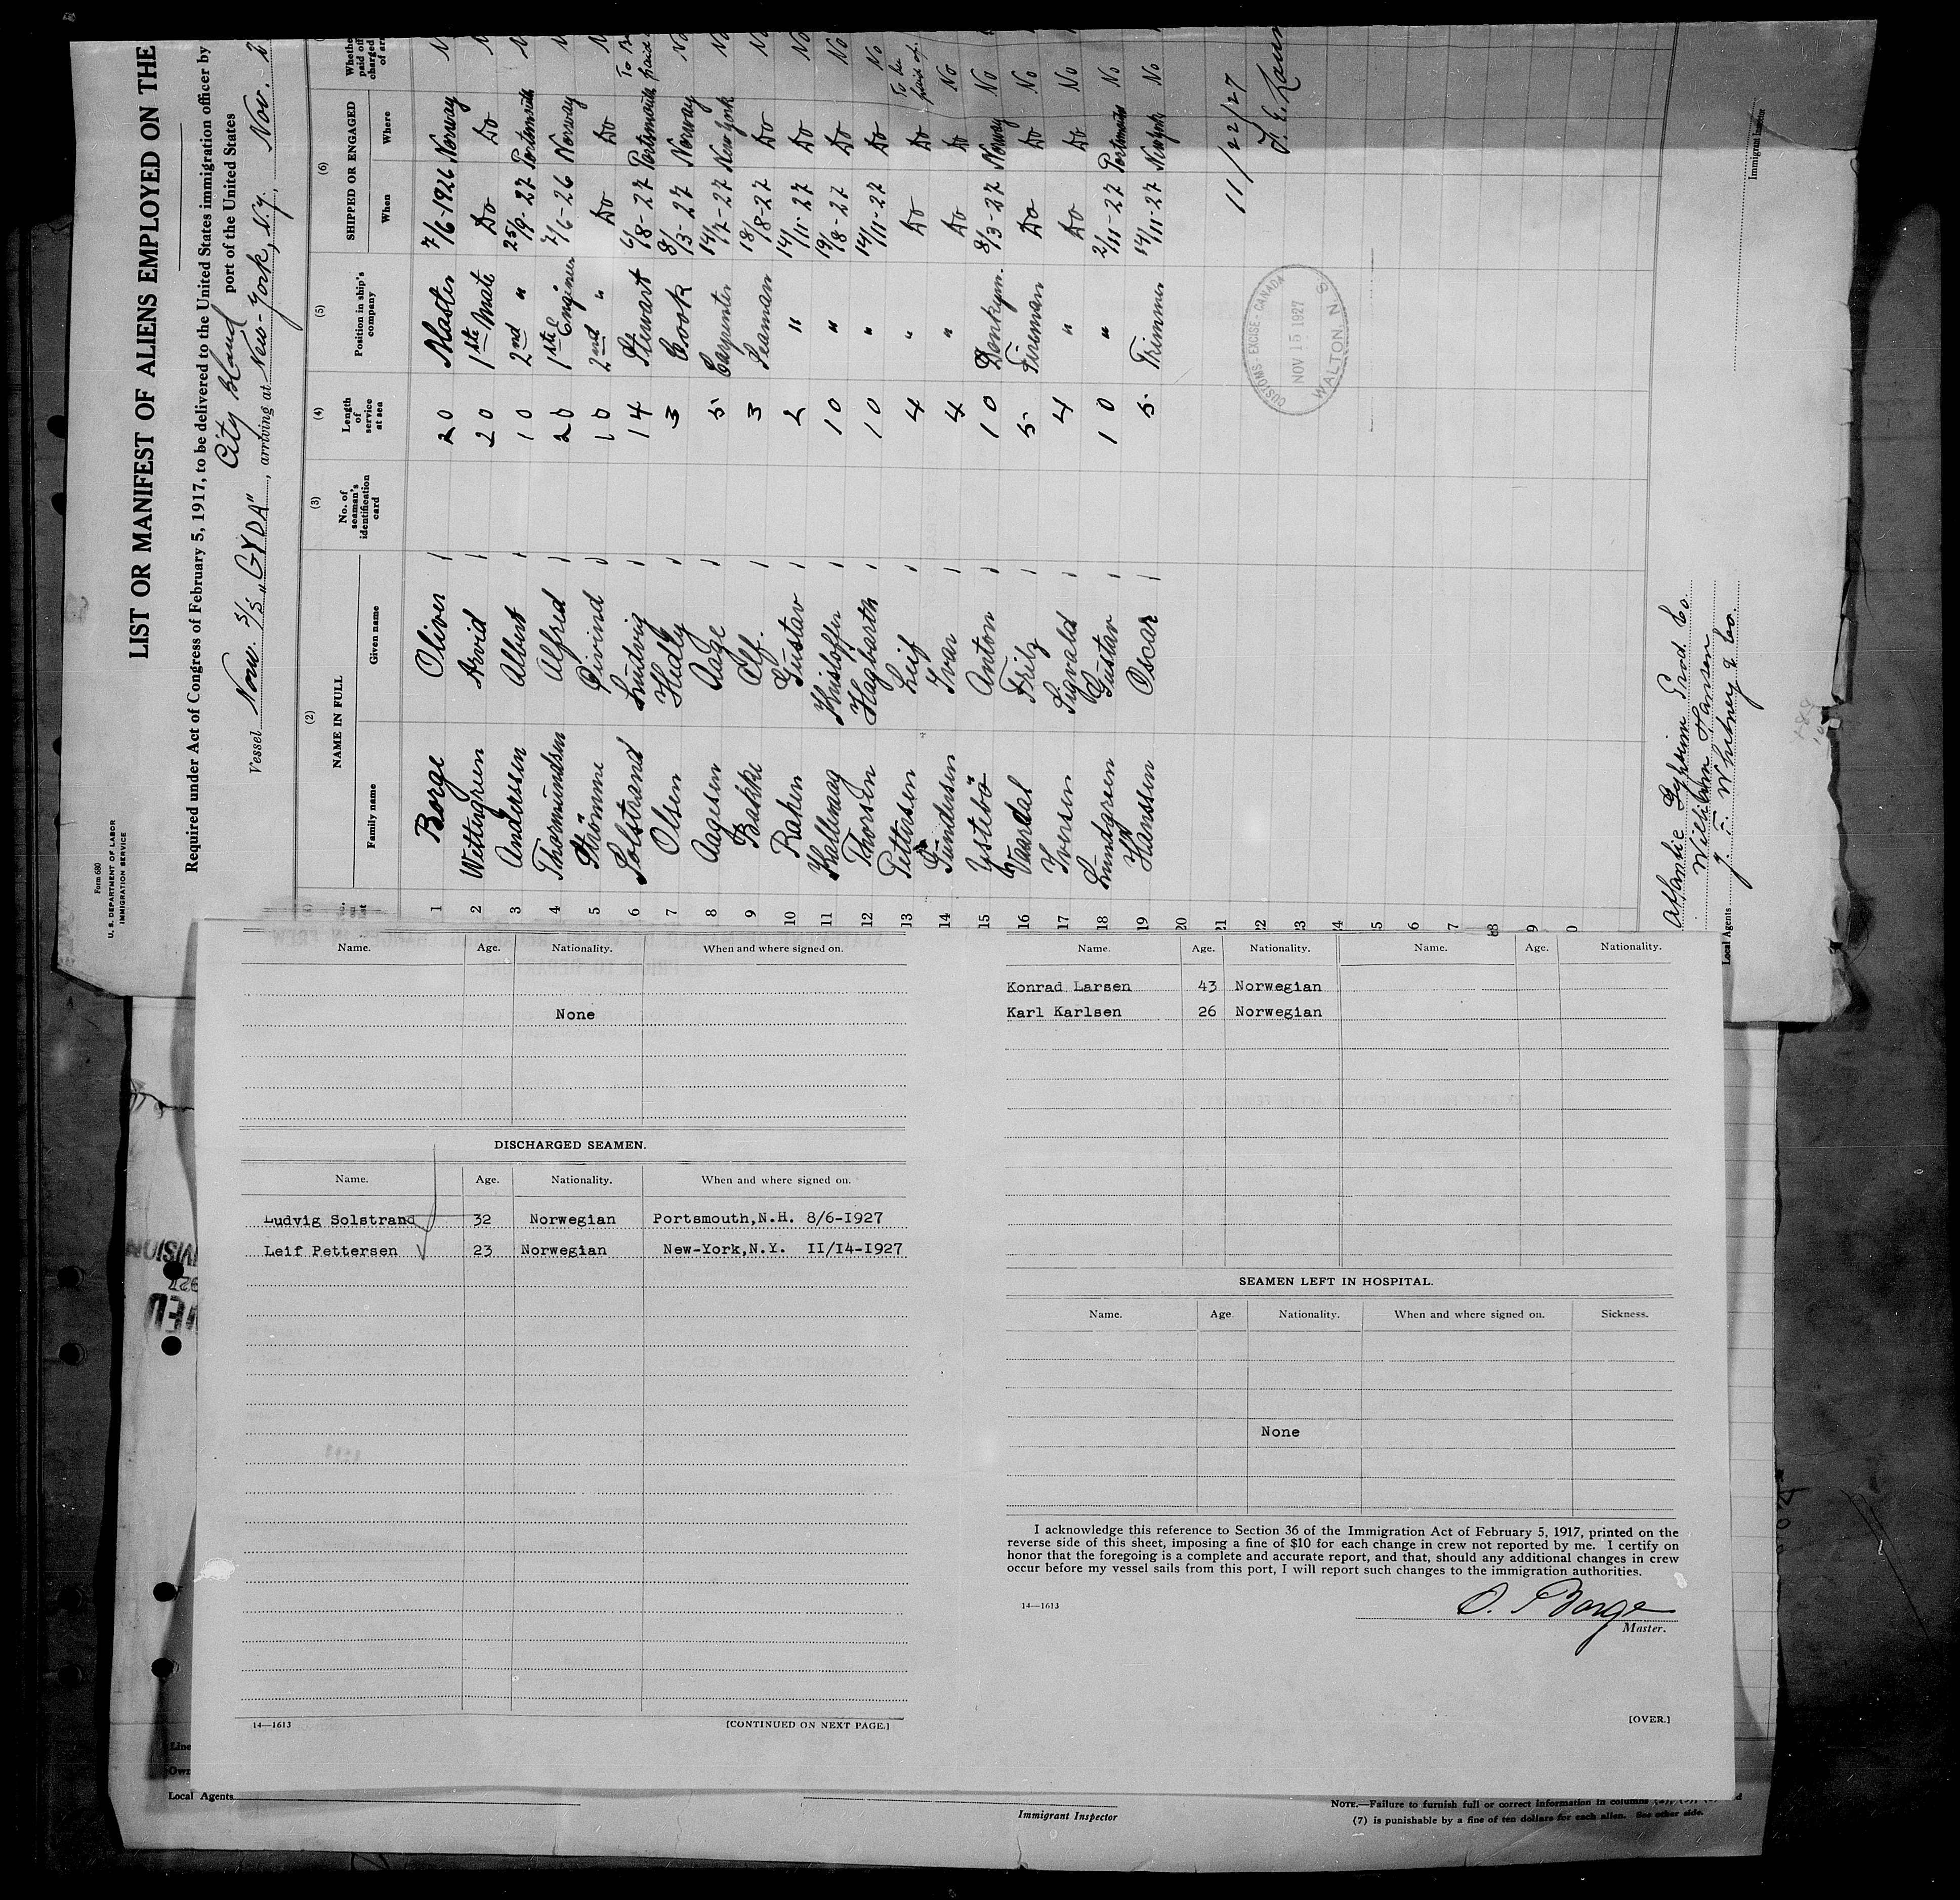 Form 680
U. S. DEPARTMENT OF LABOR
IMMIGRATION SERVICE
LIST OR MANIFEST OF ALIENS EMPLOYED ON THE
Required under Act of Congress of February 5, 1917, to be delivered to the United States immigration officer by
port of the United States
Vessel Norw. S/S "GYDA", arriving at New-York, N.Y., Nov. 2
(2) (3) (4) (5) (6)
NAME IN FULL
Family name Given name
No. of seaman's identification card
Length of service at sea
Position in ship's company
SHIPPED OR ENGAGED
When Where
1 Borge Oliver 20 Master 7/6-1926 Norway
2 Wettergreen Arvid 20 1ste Mate Do Do
3 Andersen Albert 10 2nd " 25/9-27 Portsmouth
4 Thormundsen Alfred 20 1ste Engineer 7/6-26 Norway
5 Strömme Eivind 10 2nd " Do Do
6 Solstrand Ludvig 14 Stuwart 6/8-27 Portsmouth To be paid
7 Olsen Hedly 3 Cook 8/3-27 Norway No
8 Aagesen Aage 5 Carpenter 14/7-27 New York No
9 Bakke Elf. 3 Seaman 18/8-27 Do No
10 Raken Gustav 2 " 14/11-27 Do No
11 Kallevaag Kristoffer 10 " 19/8-27 Do No
12 Thorsen Hagbarth 10 " 14/11-27 Do No
13 Pettersen Leif 4 " Do Do To be paid of.
14 Gundersen Ivar 4 " Do Do No
15 Ystebö Anton 10 Donkeym. 8/3-27 Norway No
16 Vaardal Fritz 5 Fireman Do Do No
17 Iversen Sigvald 4 " Do Do No
18 Lundgreen Gustav 10 " 2/11-27 Portsmouth No
19 Hanssen Oscar 5 Trimmer 14/11-27 New York No
20
21
22
23
24
11/22/27
CUSTOMS-EXCISE-CANADA
NOV 15 1927
WALTON, N.S.
Immigrant Inspector
Atlantic Gypsum Prod. Co.
Wilhelm Hansen
Local Agents J. F. Whitney & Co.
Name. Age. Nationality. When and where signed on.
None
DISCHARGED SEAMEN.
Name. Age. Nationality. When and where signed on.
Ludvig Solstrand 32 Norwegian Portsmouth,N.H. 8/6-I927
Leif Pettersen 23 Norwegian New-York,N.Y. II/I4-I927
14—1613 [CONTINUED ON NEXT PAGE.]
Name. Age. Nationality. Name. Age. Nationality.
Konrad Larsen 43 Norwegian
Karl Karlsen 26 Norwegian
SEAMEN LEFT IN HOSPITAL.
Name. Age Nationality. When and where signed on. Sickness.
None
I acknowledge this reference to Section 36 of the Immigration Act of February 5, 1917, printed on the
reverse side of this sheet, imposing a fine of $10 for each change in crew not reported by me. I certify on
honor that the foregoing is a complete and accurate report, and that, should any additional changes in crew
occur before my vessel sails from this port, I will report such changes to the immigration authorities.
14—1613
O. Borge
Master.
[OVER.]
Line
Own
Local Agents
Immigrant Inspector
NOTE.—Failure to furnish full or correct information in columns
(7) is punishable by a fine of ten dollars for each alien. See other side.